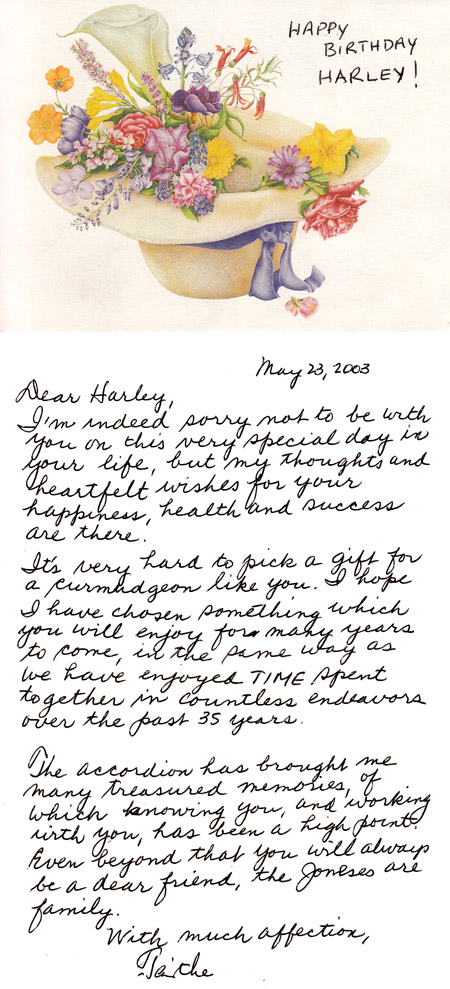 HAPPY
BIRTHDAY
HARLEY!
May 23, 2003
Dear Harley,
I'm indeed sorry not to be with
you on this very special day in
your life, but my thoughts and
heartfelt wishes for your
happiness, health and success
are there.
It's very hard to pick a gift for
a curmudgeon like you. I hope
I have chosen something which
you will enjoy for many years
to come, in the same way as
we have enjoyed TIME spent
together in countless endeavors
over the past 35 years.
The accordion has brought me
many treasured memories, of
which knowing you, and working
with you, has been a high point.
Even beyond that you will always
be a dear friend, the Joneses are
family.
With much affection,
Faithe